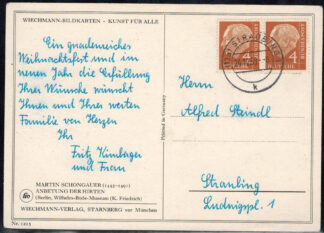 WIECHMANN-BILDKARTEN · KUNST FÜR ALLE
Ein gnadenreiches
Weihnachtsfest und im
neuen Jahr die Erfüllung
Ihrer Wünsche wünscht
Ihnen und Ihrer werten
Familie von Herzen
Ihr
Fritz
und Frau
MARTIN SCHONGAUER (1445-1491)
ANBETUNG DER HIRTEN
(Berlin, Wilhelm-Bode-Museum (K. Friedrich)
WIECHMANN-VERLAG, STARNBERG vor München
Nr. 1205
Printed in Germany
STRAUBING
k
4
4
Herrn
Alfred Steindl
Straubing
Ludwigspl. 1